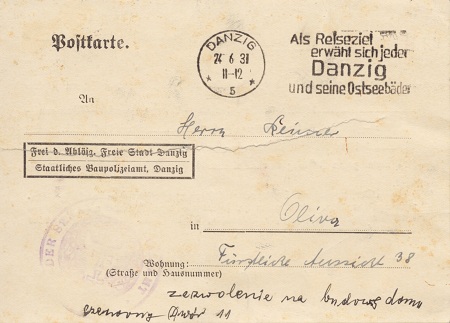 Postkarte.
DANZIG
24 6 31
11-12
* 5 *
Als Reiseziel
erwählt sich jeder
Danzig
und seine Ostseebäder
An
Herrn
Frei d. Ablösg. Freie Stadt Danzig
Staatliches Baupolizeiamt, Danzig
in Oliva
Wohnung: Fürstliche Aussicht 38
(Straße und Hausnummer)
DER
zezwolenie na budowę domu
11